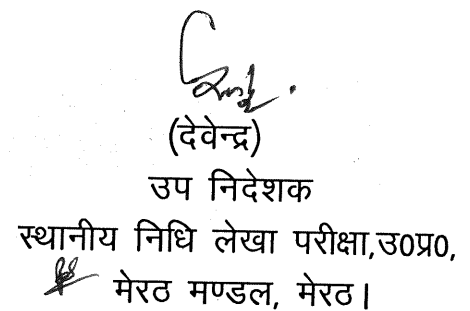 (देवेन्द्र)
उप निदेशक
स्थानीय निधि लेखा परीक्षा,उ0प्र0,
मेरठ मण्डल, मेरठ।